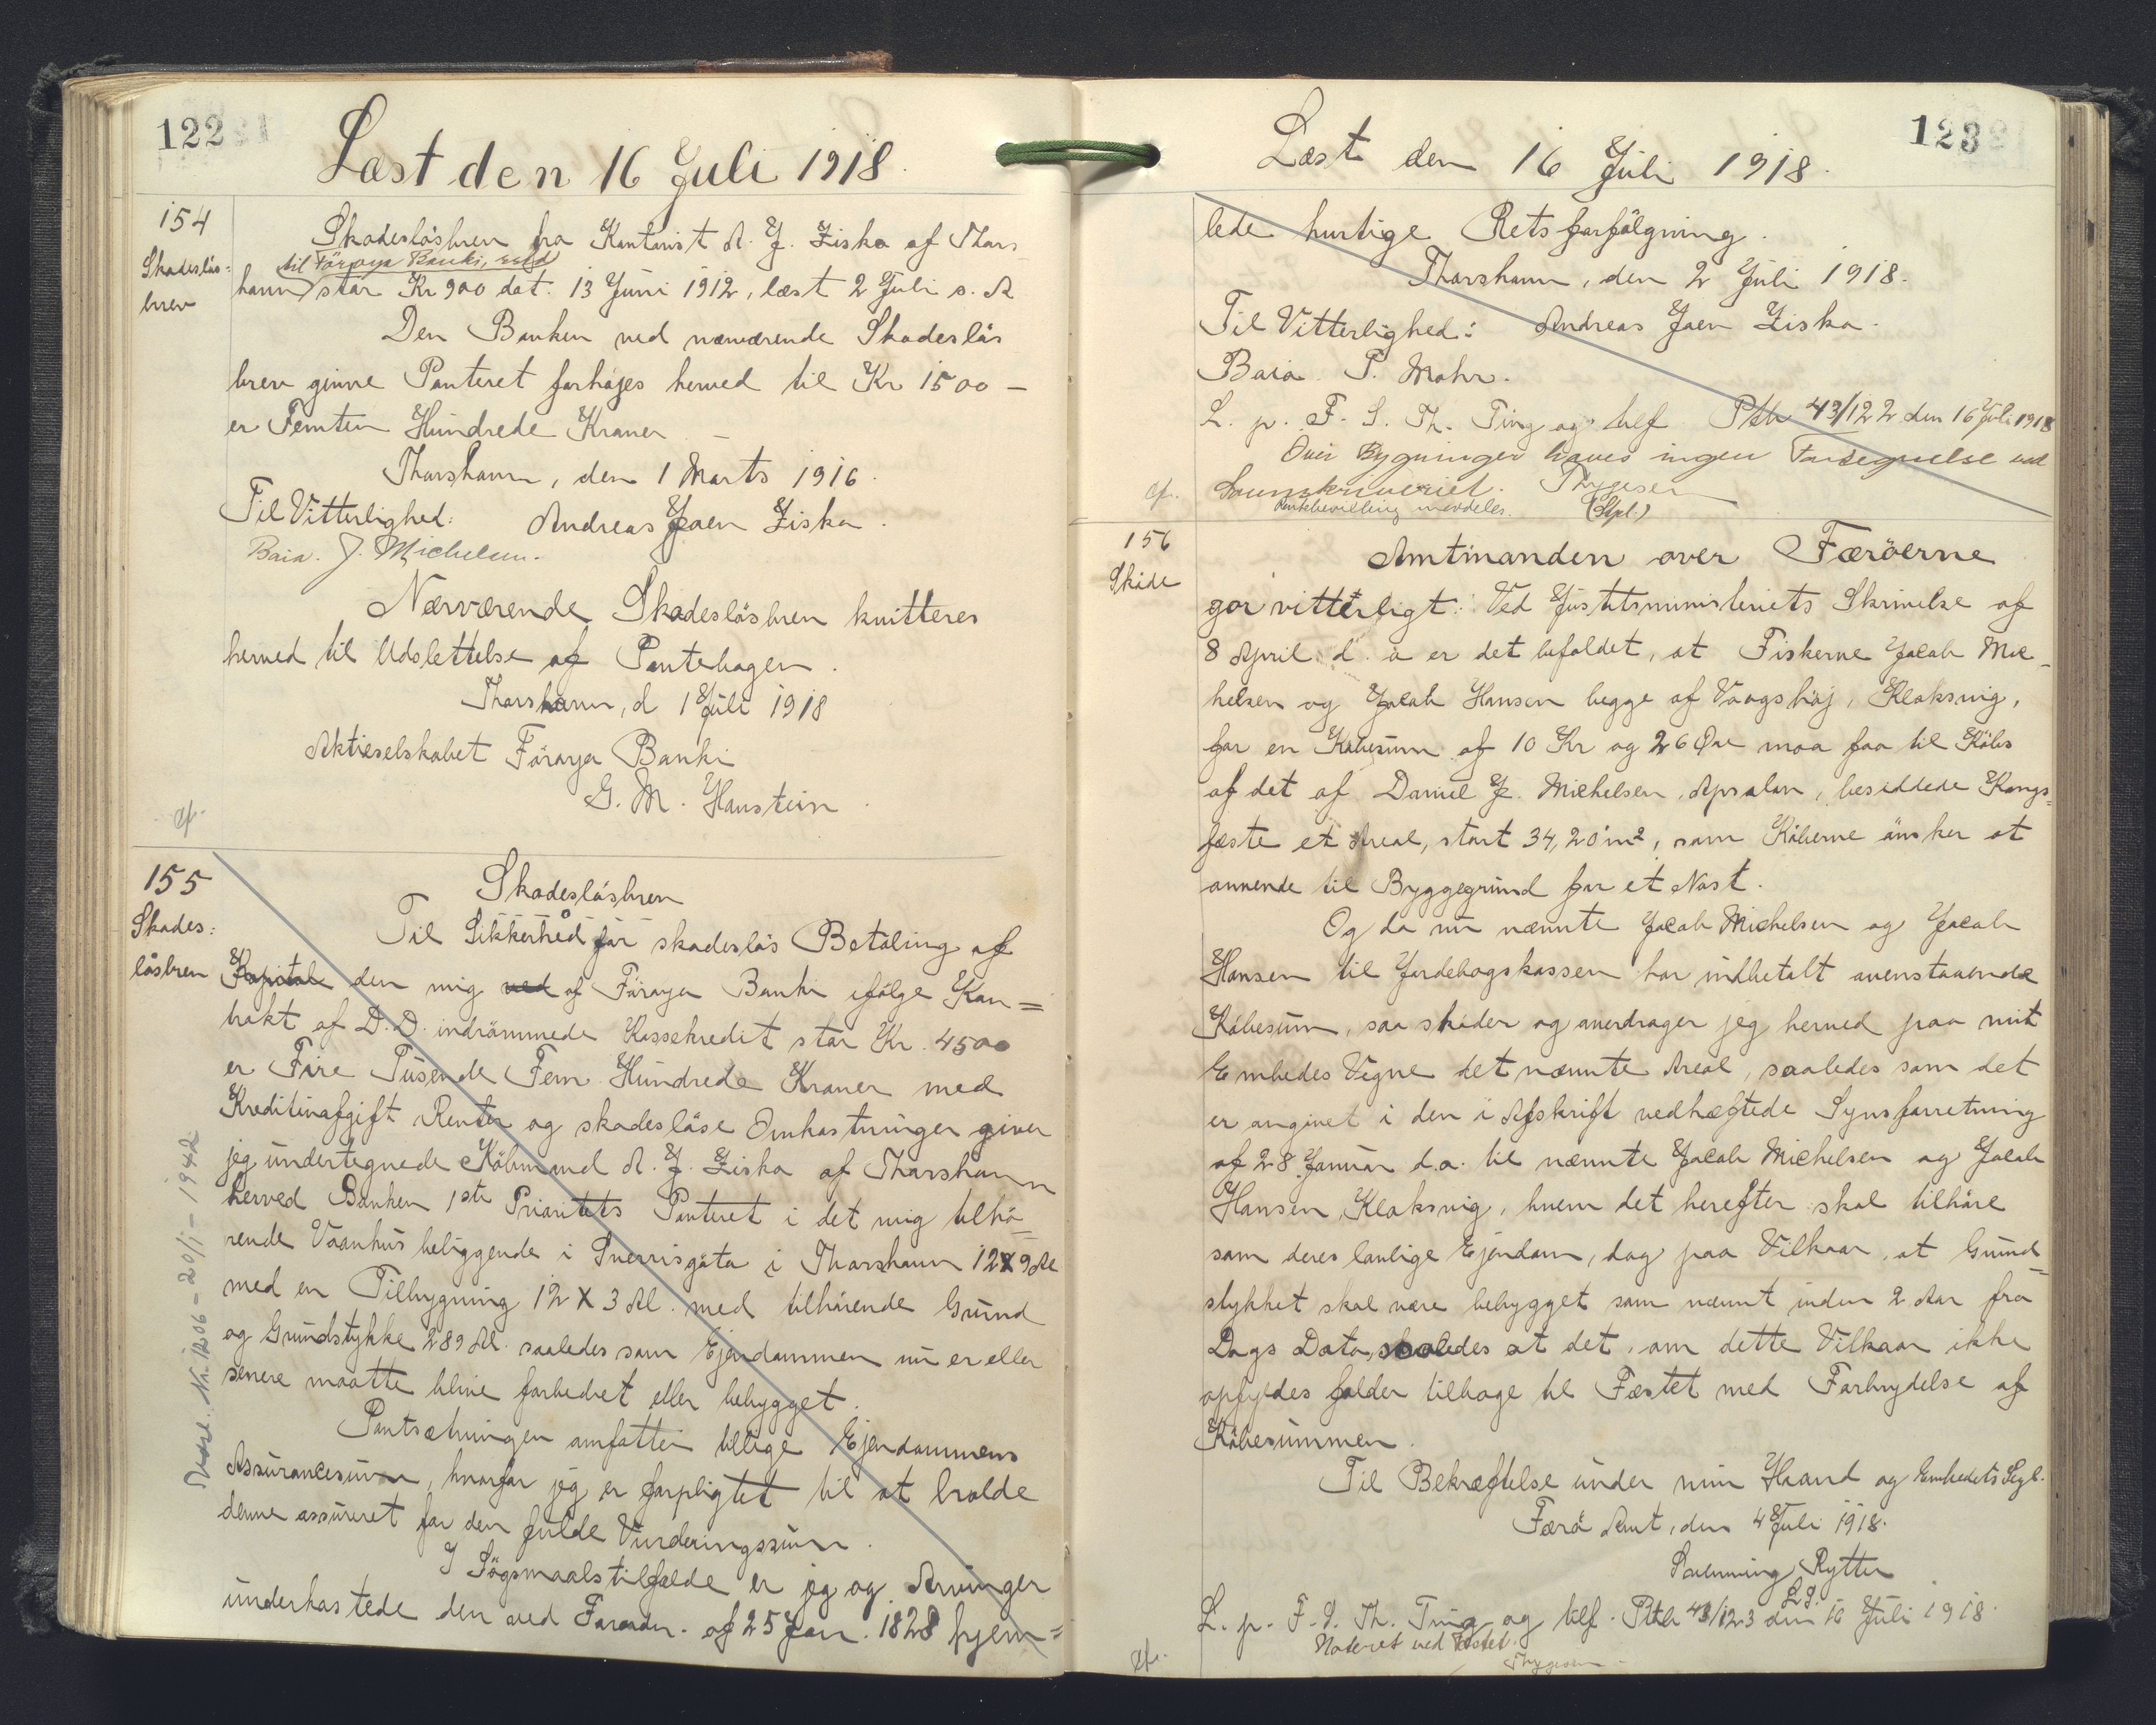 122
Læst den 16 Juli 1918.
154
Skadeslös=
brev
Skadeslösbrev fra Kontorist A. J. Ziska af Thors
til Föroya Banki, ved
havn stor Kr 900 dat. 13 Juni 1912, læst 2 Juli s. A
Den Banken ved nærværende Skadeslös
brev givne Panteret forhöjes herved til Kr 1500 –
er Femten Hundrede Kroner –
Thorshavn, den 1 Marts 1916.
Til Vitterlighed: Andreas Joen Ziska.
Baia. J. Michelsen.
Nærværende Skadeslösbrev kvitteres
herved til Udslettelse af Pantebogen.
Thorshavn, d 1 Juli 1918
Aktieselskabet Föroya Banki
G. M. Haustein.
cf.
155
Skades:
lösbrev
Skadeslösbrev
Til Sikkerhed for skadeslös Betaling af
Kapitale den mig ved af Föroya Banki ifölge Kon=
trakt af D.D. indrömmede Kassekredit stor Kr. 4500
er Fire Tusende Fem Hundrede Kroner med
Kreditivafgift Renter og skadeslöse Omkostninger giver
jeg undertegnede Köbmand A. J. Ziska af Thorshavn
herved Banken 1ste Prioritets Panteret i det mig tilhö=
rende Vaanhus beliggende i Sverrisgöta i Thorshavn 12 X 9 Al
med en Tilbygning 12 X 3 Al. med tilhörende Grund
og Grundstykke 289 Al. saaledes som Ejendommen nu er eller
senere maatte blive forbedret eller bebygget.
Pantsætningen omfatter tillige Ejendommens
Assurancesum, hvorfor jeg er forpligtet til at holde
denne assureret for den fulde Vurderingssum.
I Sögsmaalstilfælde er jeg og Arvinger
underkastede den ved Forordn. af 25 Jan. 1828 hjem=
Nr. 1206 – 20/1 – 1942
123
Læst den 16 Juli 1918.
lede hurtige Retsforfölgning.
Thorshavn, den 2 Juli 1918.
Til Vitterlighed: Andreas Joen Ziska.
Baia P. Mohr.
L. p. F. S. Th. Ting og tilf. Ptb 43/122 den 16 Juli 1918
Over Bygninger haves ingen Forsegnelse ved
cf. Sorenskriveriet. Thygesen
meddeles. (Stpl.)
156
Sköde
Amtmanden over Færöerne
gör vitterligt: Ved Justitsministeriets Skrivelse af
8 April d. a er det bifaldet, at Fiskerne Jacob Mic–
helsen og Jacob Hansen begge af Vaagshöj, Klaksvig,
for en Köbesum af 10 Kr og 26 Öre maa faa til Köbs
af det af Daniel J. Michelsen, Apsalon, besiddede Kongs=
fæste et Areal, stort 34,20 m², som Köberne önsker at
anvende til Byggegrund for et Nöst.
Og da nu nævnte Jacob Michelsen og Jacob
Hansen til Jordebogskassen har indbetalt ovenstaaende
Köbesum, saa sköder og overdrager jeg herved paa mit
Embedes Vegne det nævnte Areal, saaledes som det
er angivet i den i Afskrift vedhæftede Synsforretning
af 28 Januar d.a. til nævnte Jacob Michelsen og Jacob
Hansen, Klaksvig, hvem det herefter skal tilhöre
som deres lovlige Ejendom, dog paa Vilkaar, at Grund=
stykket skal være bebygget som nævnt inden 2 Aar fra
Dags Dato, saaledes at det, om dette Vilkaar ikke
opfyldes falder tilbage til Fæstet med Forbrydelse af
Köbesummen.
Til Bekræftelse under min Haand og Embedets Segl.
Færö Amt, den 4 Juli 1918.
Svenning Rytter
L.S.
L. p. F. S. Th. Ting og tilf. Ptb 43/123 den 16 Juli 1918.
Noteret ved Fæstet.
cf. Thygesen